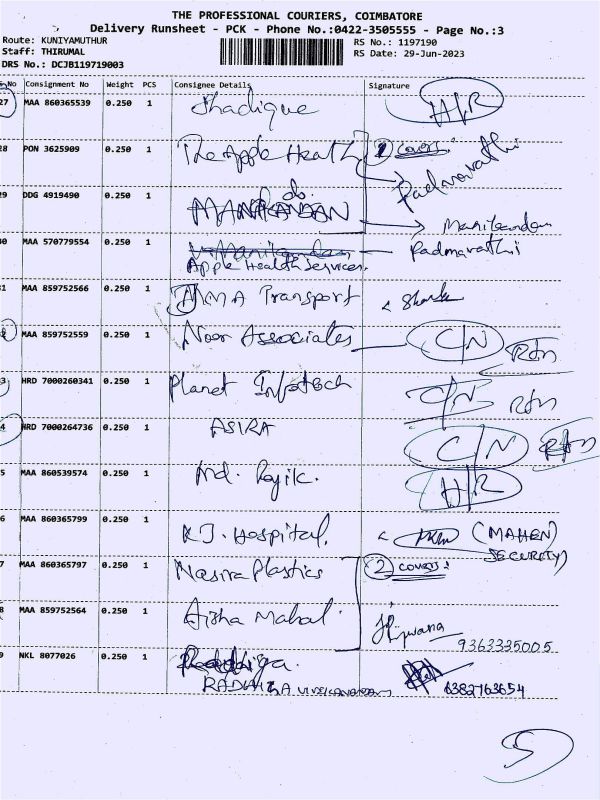 THE PROFESSIONAL COURIERS, COIMBATORE
Delivery Runsheet - PCK - Phone No.:0422-3505555 - Page No.:3
Route: KUNIYAMUTHUR
Staff: THIRUMAL
DRS No.: DCJB119719003
RS No.: 1197190
RS Date: 29-Jun-2023
No Consignment No Weight PCS Consignee Details Signature
27 MAA 860365539 0.250 1 Shadique H/R
28 PON 3625909 0.250 1 The Apple Health 2 covers:
Padmavathi
29 DDG 4919490 0.250 1 do.
MANIKANDAN Manikandan
30 MAA 570779554 0.250 1 Padmavathi
Apple Health Services.
31 MAA 859752566 0.250 1 AMA Transport
MAA 859752559 0.250 1 Noor Associates C/N RTN
3 HRD 7000260341 0.250 1 Planet Infotech C/N RTN
4 HRD 7000264736 0.250 1 ASIRA C/N RTN
5 MAA 860539574 0.250 1 Md. Rafik. H/R
6 MAA 860365799 0.250 1 K.J. Hospital. (MAHEN)
SECURITY
7 MAA 860365797 0.250 1 Nasira Plastics 2 covers:
8 MAA 859752564 0.250 1 Aisha Mahal
9363335005
9 NKL 8077026 0.250 1
RADHIGA VIVEKANANDAN 6382763654
5